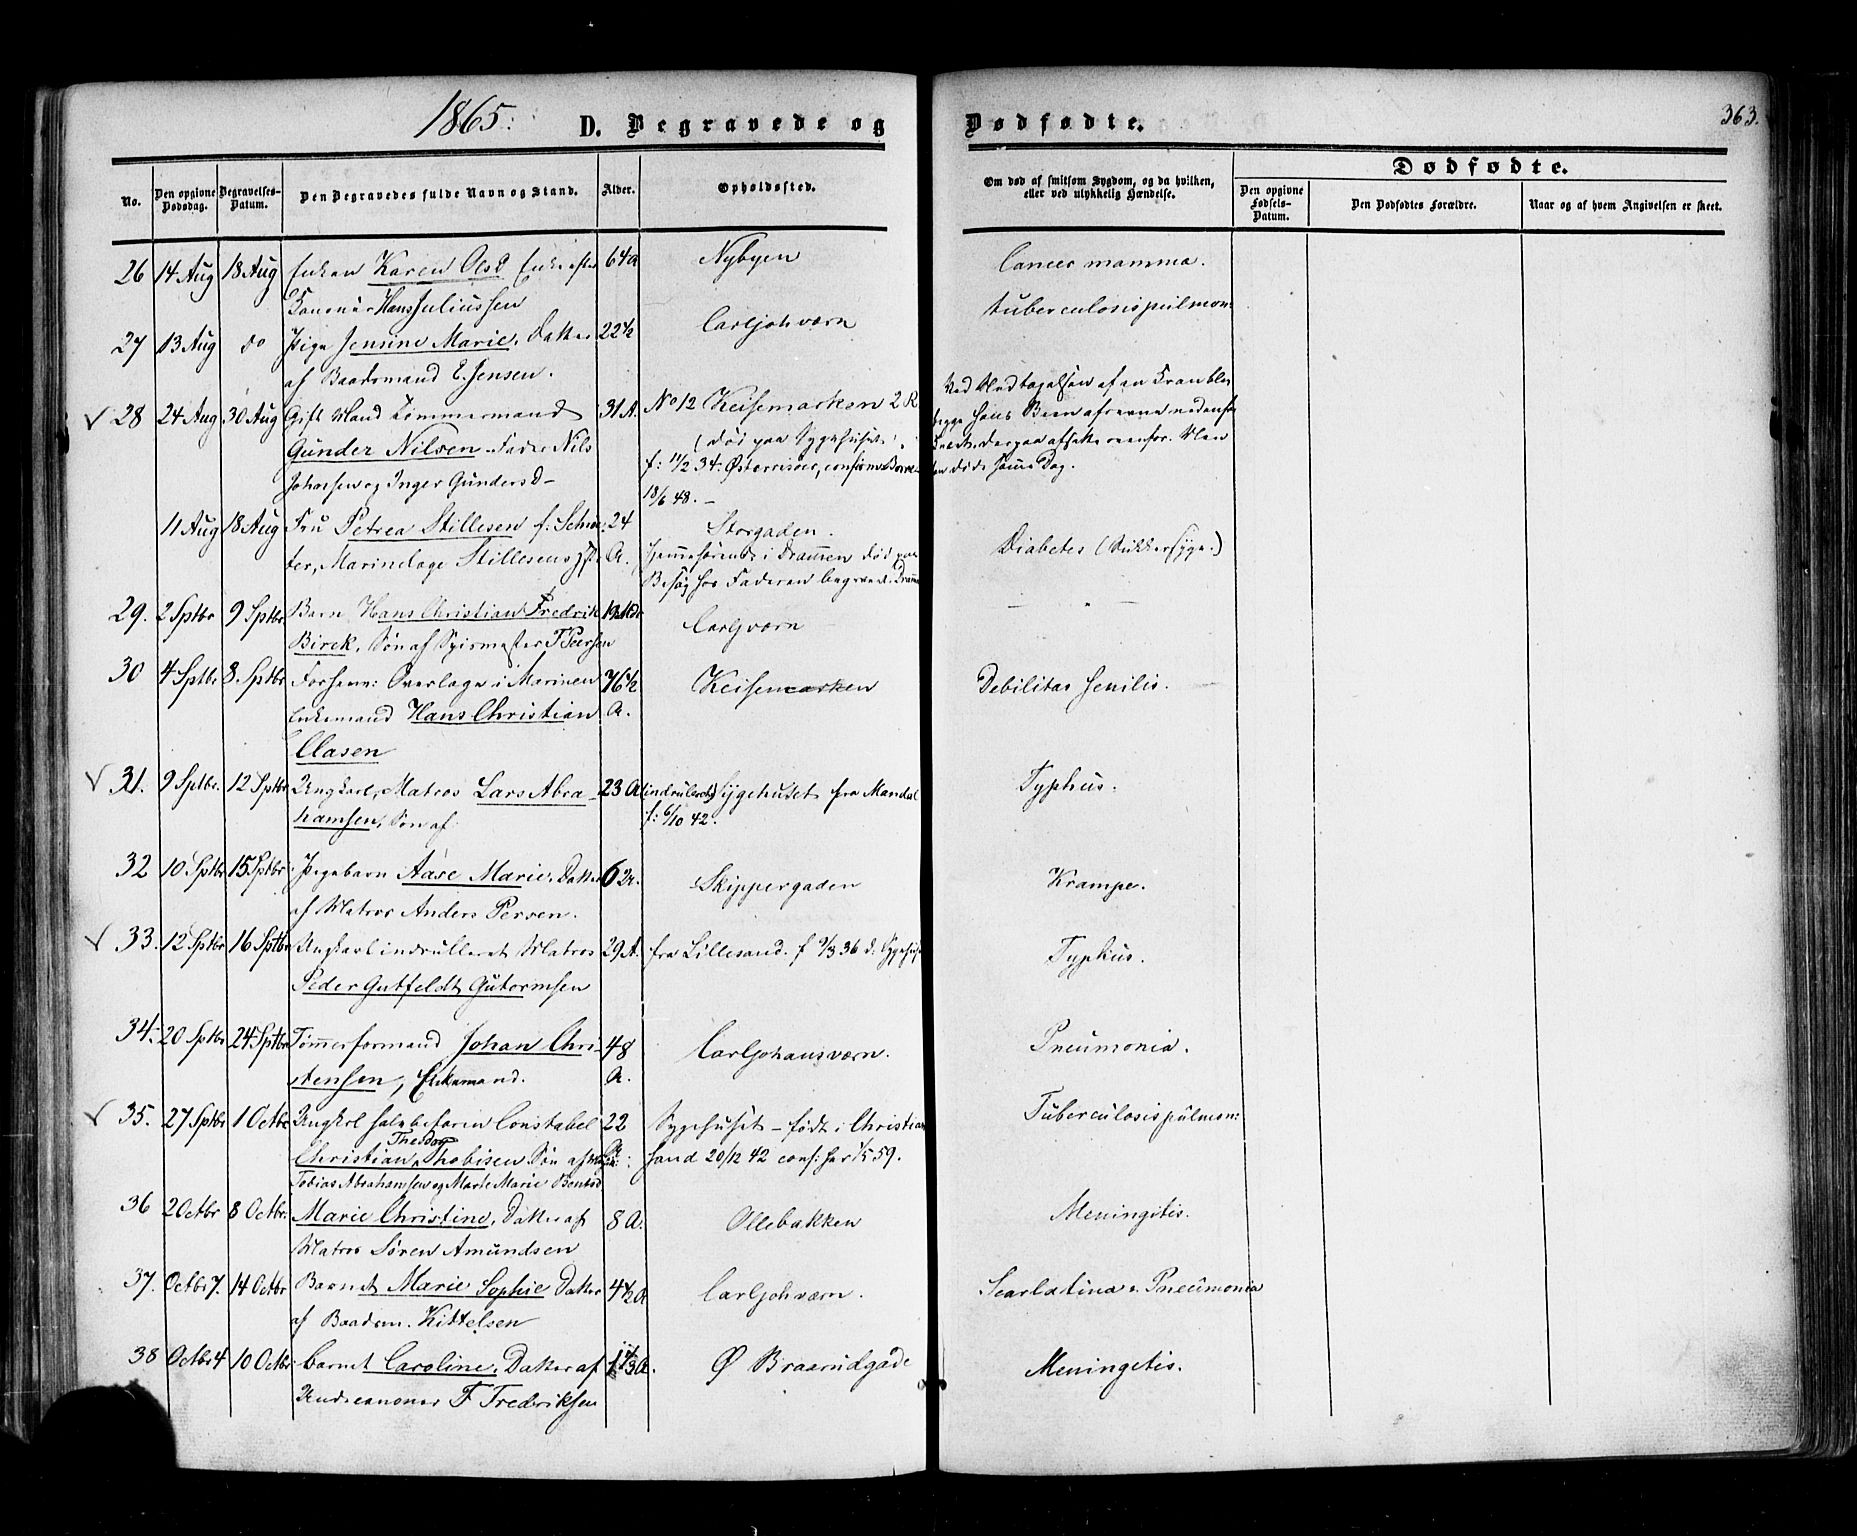 1865.
D. Begravede og Dødfødte.
363.
No.
Den opgivne Dødsdag.
Begravelses-Datum.
Den Begravedes fulde Navn og Stand.
Alder.
Opholdssted.
Om død af smitsom Sygdom, og da hvilken, eller ved ulykkelig Hændelse.
Dødfødte.
Den opgivne Fødsels-Datum.
Den Dødfødtes Forældre.
Naar og af hvem Angivelsen er skeet.
26 14 Aug 18 Aug Enken Karen Olsd Enke efter 64 a Nybyen Cancer mamma.
Hans Juliussen
27 13 Aug do Pige Jensine Marie, Datter 22½ Carljohværn tuberculosis pulmon:
af Baadsmand E. Jensen.
28 24 Aug 30 Aug Gift Mand Tømmermand 31 A. No 12 Keisemarken 2 R
Gunder Nilsen. Fader Nils (død paa Sygehuset)
og Inger Gundersd- f: 11/2 34: Østerrisøer,
18/6 48. -
døde samme Dag.
11 Aug 18 Aug Fru Petrea Stillesen f. Schrø- 24 A. Storgaden. Diabetes (Sukkersyge.)
ter, Marinelæge Stillesens hjemhørende i Drammen død paa
Besøg hos Faderen begravet i
29. 2 Sptbr 9 Sptbr Barn Hans Christian Fredrik Carljværn - " -
Birck, Søn af
30 4 Sptbr 8. Sptbr Overlæge i Marinen 76½ A. Keisemarken Debilitas senilis.
Enkemand Hans Christian
Clasen
31. 9 Sptbr. 12 Sptbr Ungkarl, Matros Lars Abra- 23 A (indrulleret) Sygehuset fra Mandal Typhus.
hamsen, Søn af f: 6/10 42.
32 10 Sptbr 15 Sptbr Pigebarn Aase Marie, Datter 6 Skippergaden Krampe.
af Matros Anders Persen.
33. 12 Sptbr 16 Sptbr Ungkarl indrulleret Matros 29 A. fra Lillesand. f 9/3 36 d. Sygehus Typhus.
Peder Gutfeldt Gutormsen
34. 20 Sptbr 24 Sptbr Tømmerformand Johan Chri- 48 A. Carljohansværn. Pneumonia.
stensen, Enkemand.
35. 27 Sptbr 1 Octbr Ungkrl halvbefaren Constabel 22 Sygehuset - født i Christian Tuberculosis pulmon:
Christian Theodor Thobisen Søn af sand 20/12 42 conf: her 59.
Tobias Abrahamsen og Marte Marie
36 2 Octbr 8 Octbr. Marie Christine, Datter af 8 A. Ollebakken Meningitis.
Matros Søren Amundsen
37. Octbr 7. 14 Octbr Barnet Marie Sophie Datter 4½ A Carljohværn. Scarlatina & Pneumonia
af Baadsm. Kittelsen
38 Octbr 4 10 Octbr. barnet Caroline, Datter af Ø Braarudgade Meningitis.
Undercanoner F Frederiksen